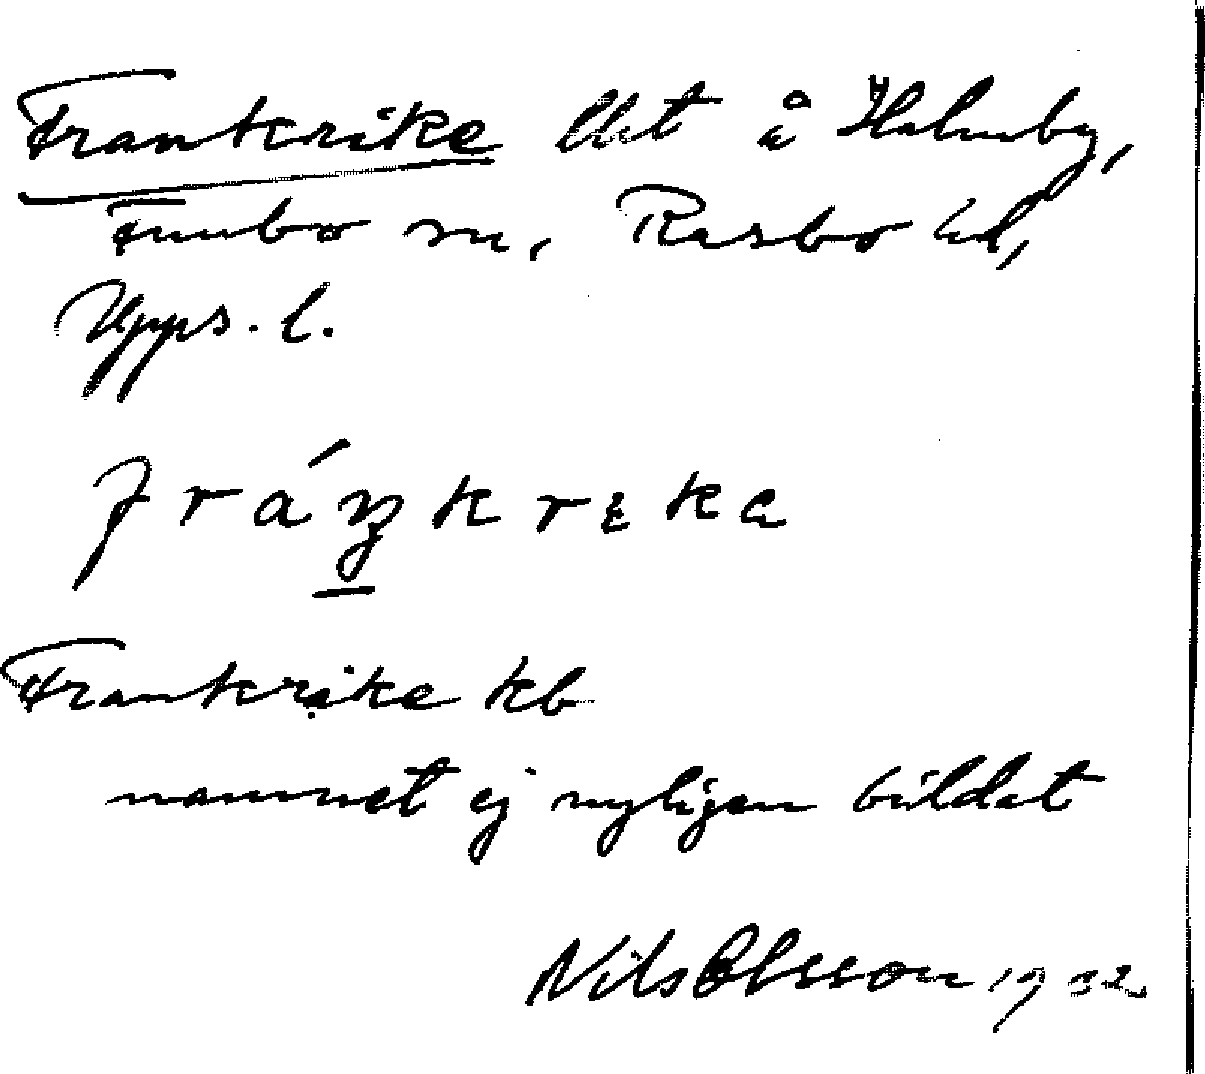 Frankrike lht å Halmby,
Funbo sn, Rasbo hd,
Upps. l.
fráŋkrɛka
Frankrike kb
namnet ej nyligen bildat
Nils Olsson 1932